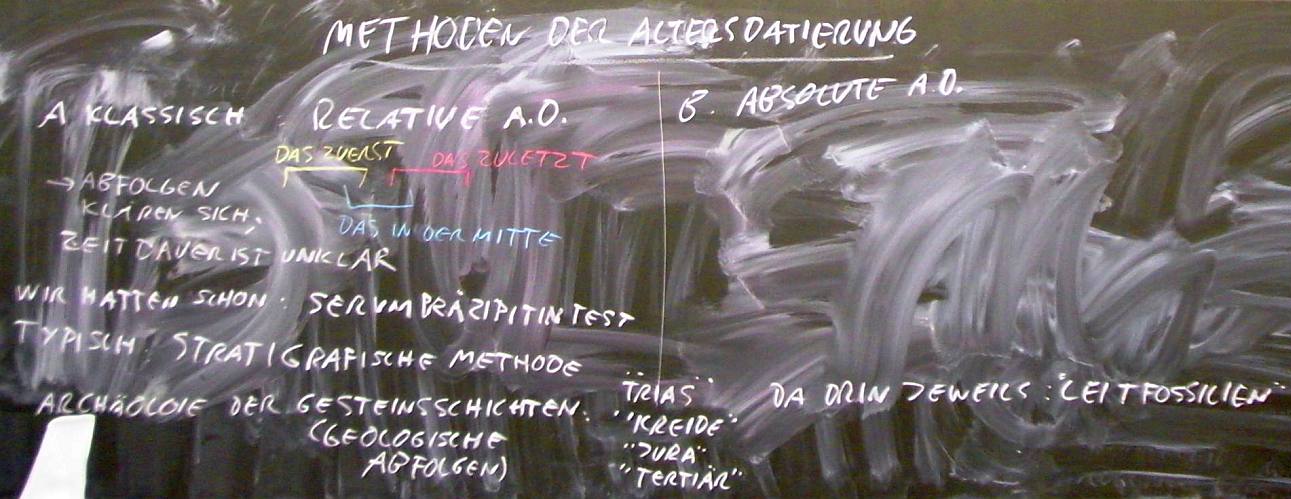 METHODEN DER ALTERSDATIERUNG
A KLASSISCH RELATIVE A.D.
DAS ZUERST DAS ZULETZT
DAS IN DER MITTE
→ ABFOLGEN
KLÄREN SICH,
ZEITDAUER IST UNKLAR
WIR HATTEN SCHON: SERUMPRÄZIPITINTEST
TYPISCH: STRATIGRAFISCHE METHODE
ARCHÄOLOIE DER GESTEINSSCHICHTEN:
(GEOLOGISCHE
ABFOLGEN)
"TRIAS"
"KREIDE"
"JURA"
"TERTIÄR"
B. ABSOLUTE A.D.
DA DRIN JEWEILS: "LEITFOSSILIEN"